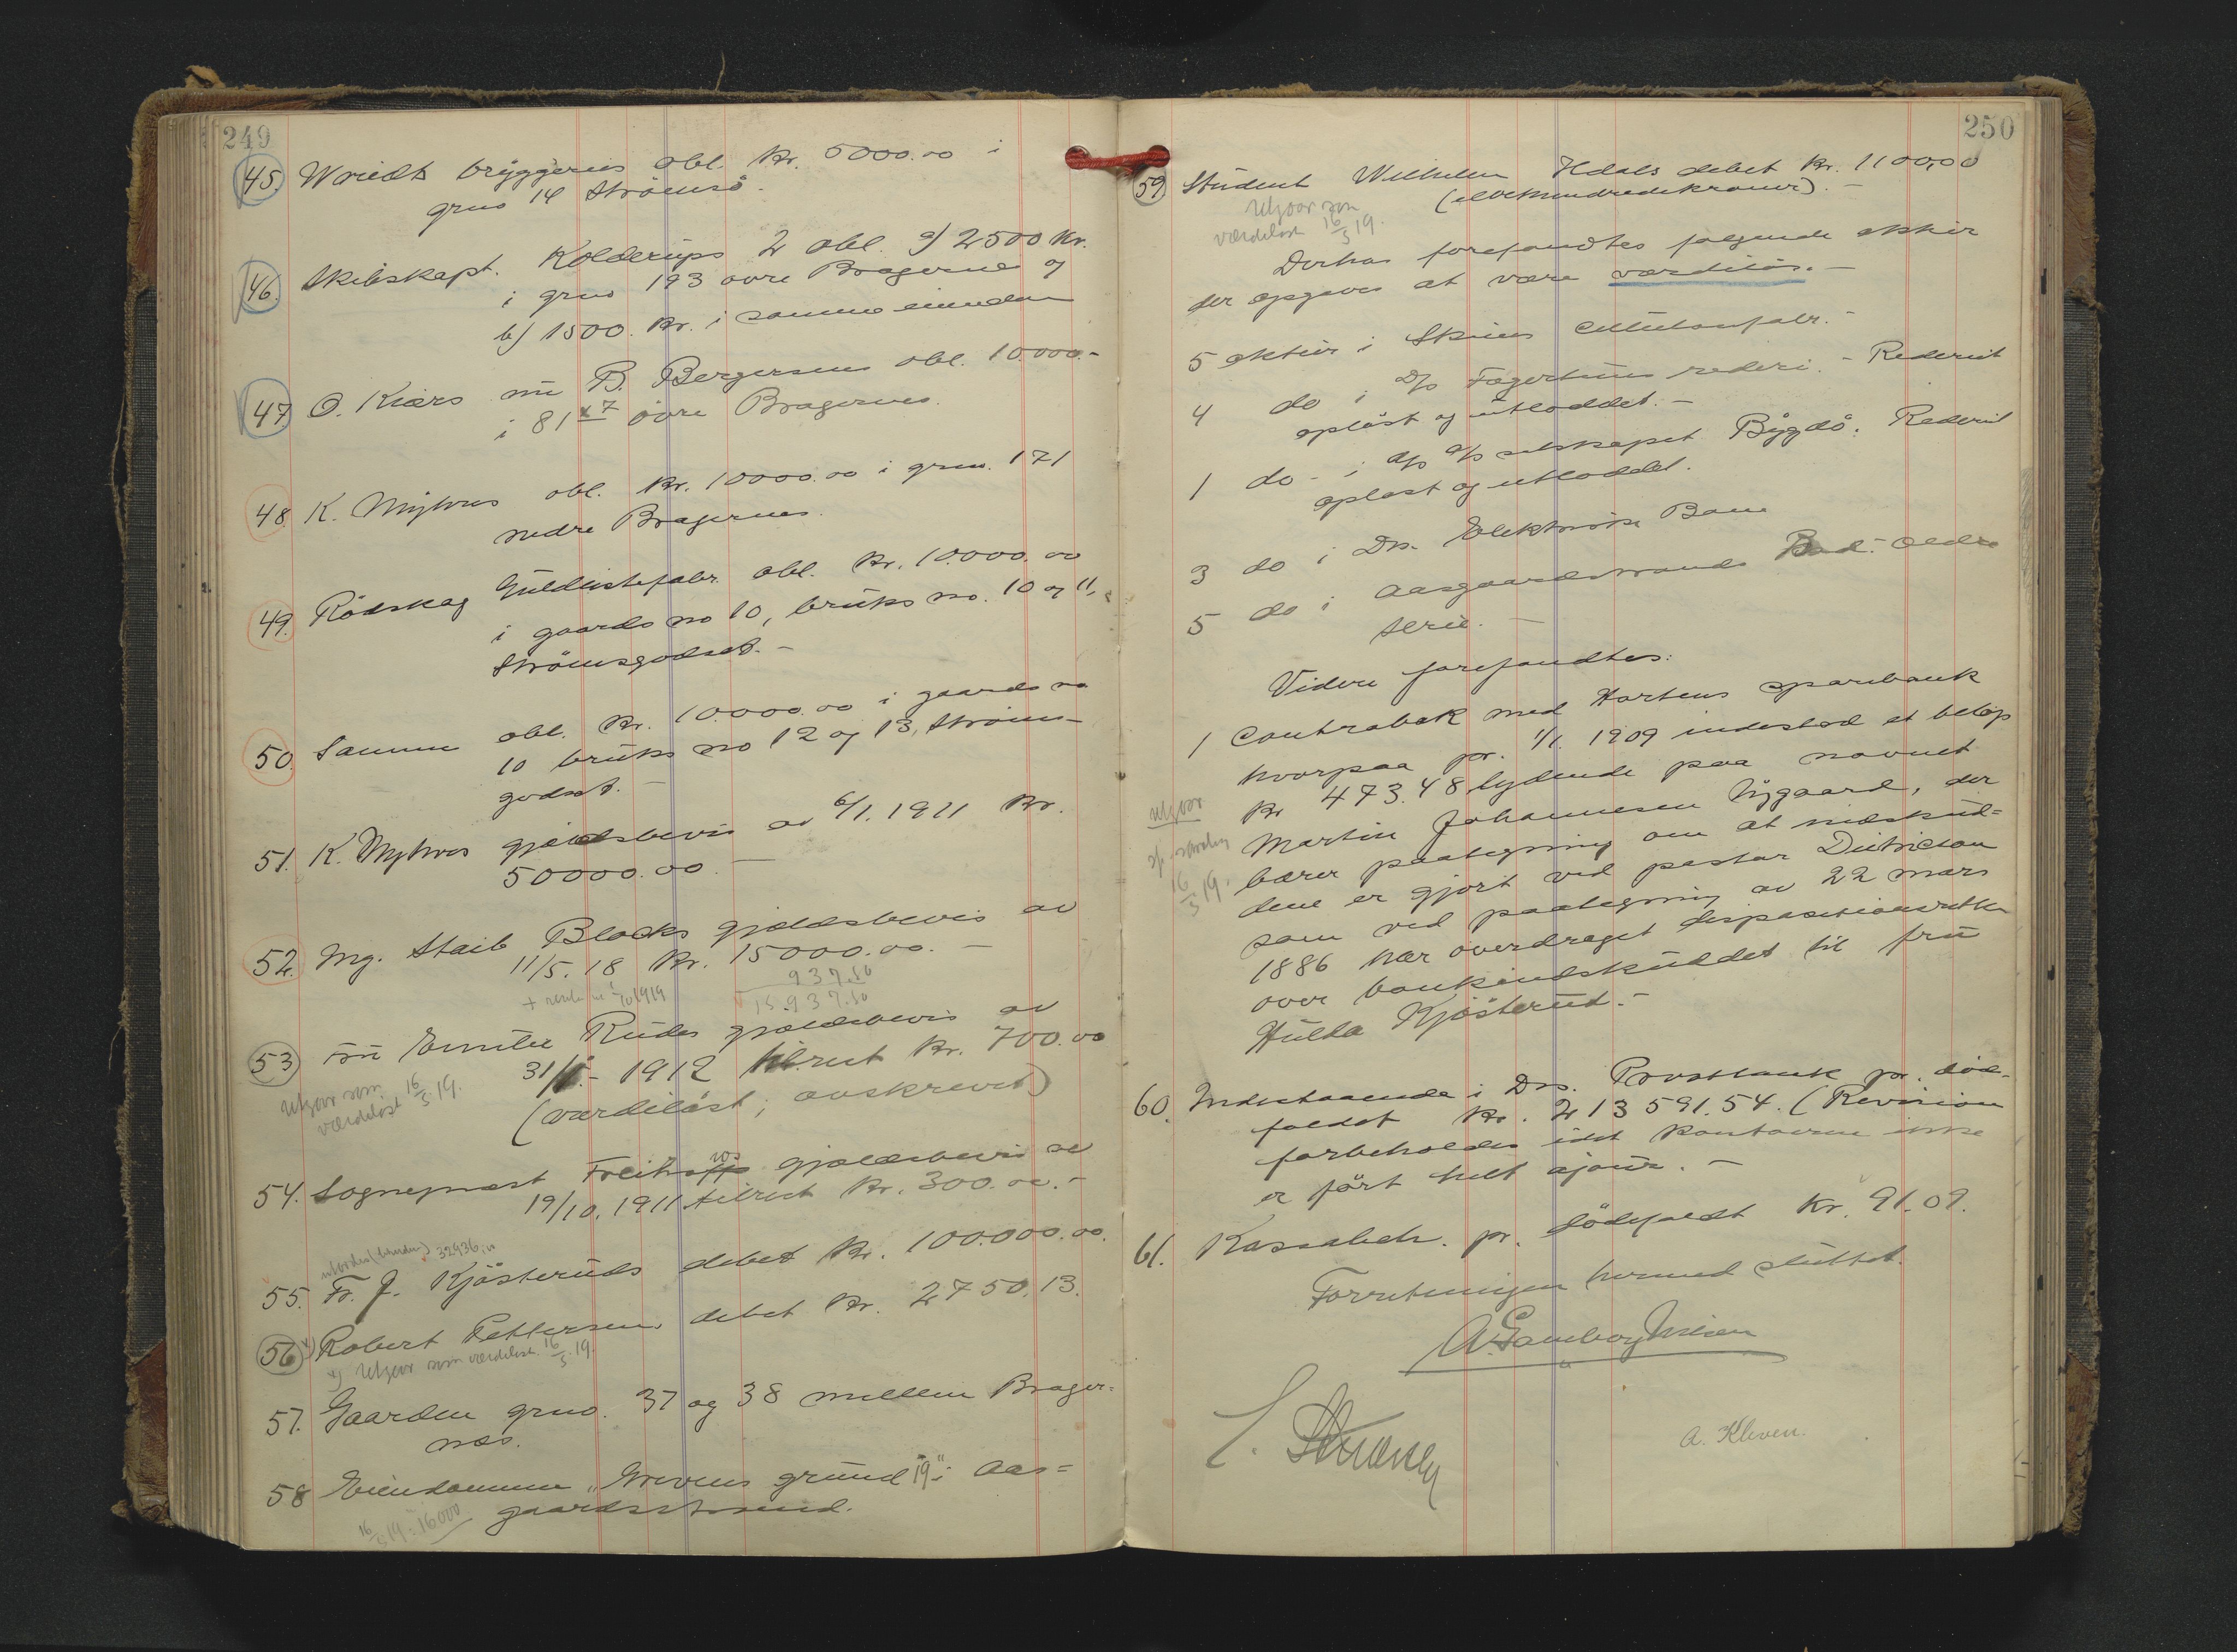 249
45. Wriedts bryggeries obl. kr. 5000.00 i
grno 14 Strömsö.
46. Skibskapt. Kolderups 2 obl. a) 2500 kr.
i grno 193 övre Bragernes og
b) 1500 kr. i samme eiendom
47. O. Kiærs nu B. Bergersens obl. 10.000.-
i 81 övre Bragernes.
48. K. Myhres obl. kr. 10000.00 i grno. 171
nedre Bragernes.
49. Rödskog Guldlistefabr. obl. kr. 10.000.00
i gaards no 10, bruks no. 10 og 11,
Strömsgodset.-
50. Samme obl. kr. 10.000.00 i gaards no
10 bruks no 12 og 13, Ströms-
godset.-
51. K. Myhres gjældsbevis av 6/1.1911 kr.
50000.00.-
52. Ing. Staib Blocks gjældsbevis av
11/5.18 kr. 15000.00.-
937.50
+ 1/10 1919 15.937.50
53. Emilie Rudes gjældsbevis av
31/ - 1912 tilrest kr. 700.00
(værdilöst, avskrevet)
Utgaar som
værdilöst 16/5.19.
54. Sogneprest gjældsbevis av
19/10.1911 tilrest kr. 300.00.-
32936
55. Fr. J. Kjösteruds debet kr. 100.000.00.
56. x) Robert Pettersens debet kr. 2750.13.
x) Utgaar som værdilöst. 16/5.19.
57. Gaarden grno. 37 og 38 mellem Brager=
nes.
58 Eiendommen "Grevens grund 19" i Aas=
gaardstrand.
16/5 19: 16000
250
59. Student Wilhelm debet kr. 1100.00
(ellevehundredekroner).-
Utgaar som
værdilöst 16/5 19.
Derhos forefandtes følgende aktier
der opgaves at være værdilös.-
5 aktier i Skiens Cellulosefabr.-
4 do i D/S Fagertuns rederi.- Rederiet
oplöst og utloddet.-
1 do - i A/S selskapet Bygdö. Rederiet
oplöst og utloddet.
3 do i Drs. Elektriske Bane
5 do i Aasgaardstrands Bad. Ældre
serie.-
Videre forefandtes:
1 Contrabok med Hortens sparebank
hvorpaa pr. 1/1. 1909 indestod et belöp
kr 473.48 lydende paa navnet
Martin Johannesen Nygaard, der
bærer paategning om at indskud=
dene er gjort ved pastor Dietrichson
som ved paategning av 22 mars
1886 har overdraget dispositionsretten
over bankindskuddet til fru
Hulda Kjösterud.-
Utgaar
16/5 19.
60. Indestaaende i Drs. Privatbank pr. död=
faldet kr. 213 591.54. (Revision
forbeholdes idet kontoerne ikke
er fört helt ajour.-
61. Kassabeh. pr. dödsfaldt kr. 91.09.
Forretningen hermed sluttet.
A. Gamborg Nielsen
A. Kleven.